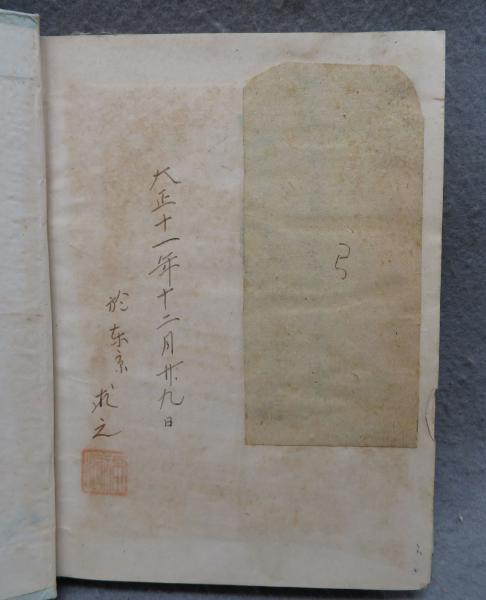 大正十一年十二月廿九日
於东京 求之